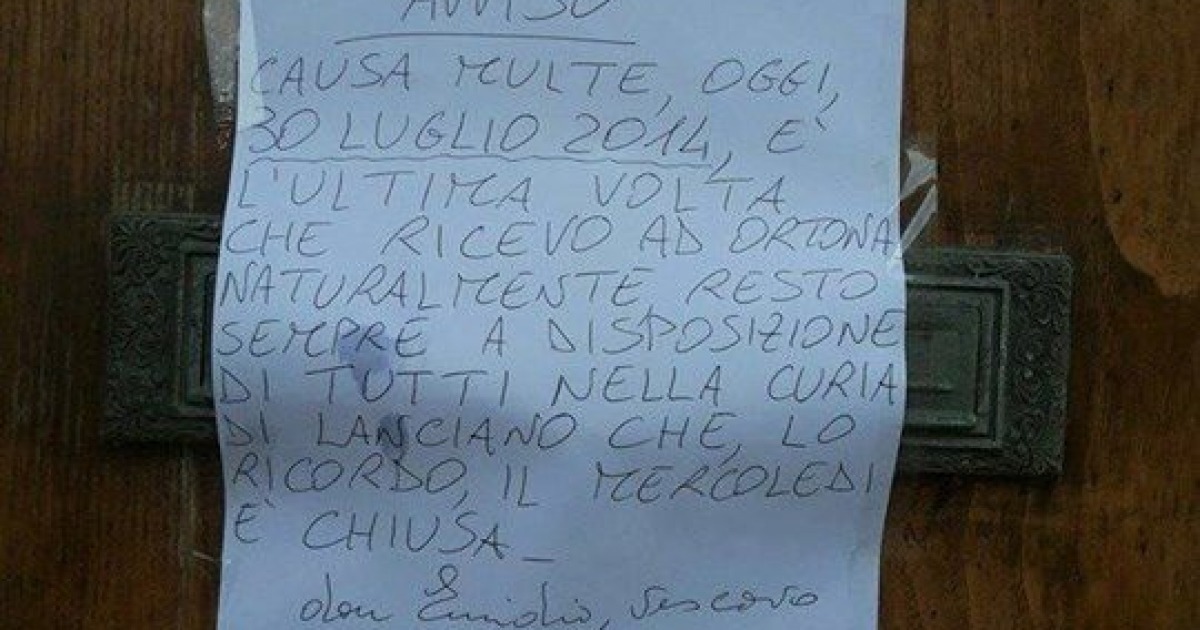 AVVISO
CAUSA MULTE, OGGI,
30 LUGLIO 2014, E'
L'ULTIMA VOLTA
CHE RICEVO AD ORTONA
NATURALMENTE, RESTO
SEMPRE A DISPOSIZIONE
DI TUTTI NELLA CURIA
DI LANCIANO CHE, LO
RICORDO, IL MERCOLEDI
E' CHIUSA_
don Emidio, vescovo